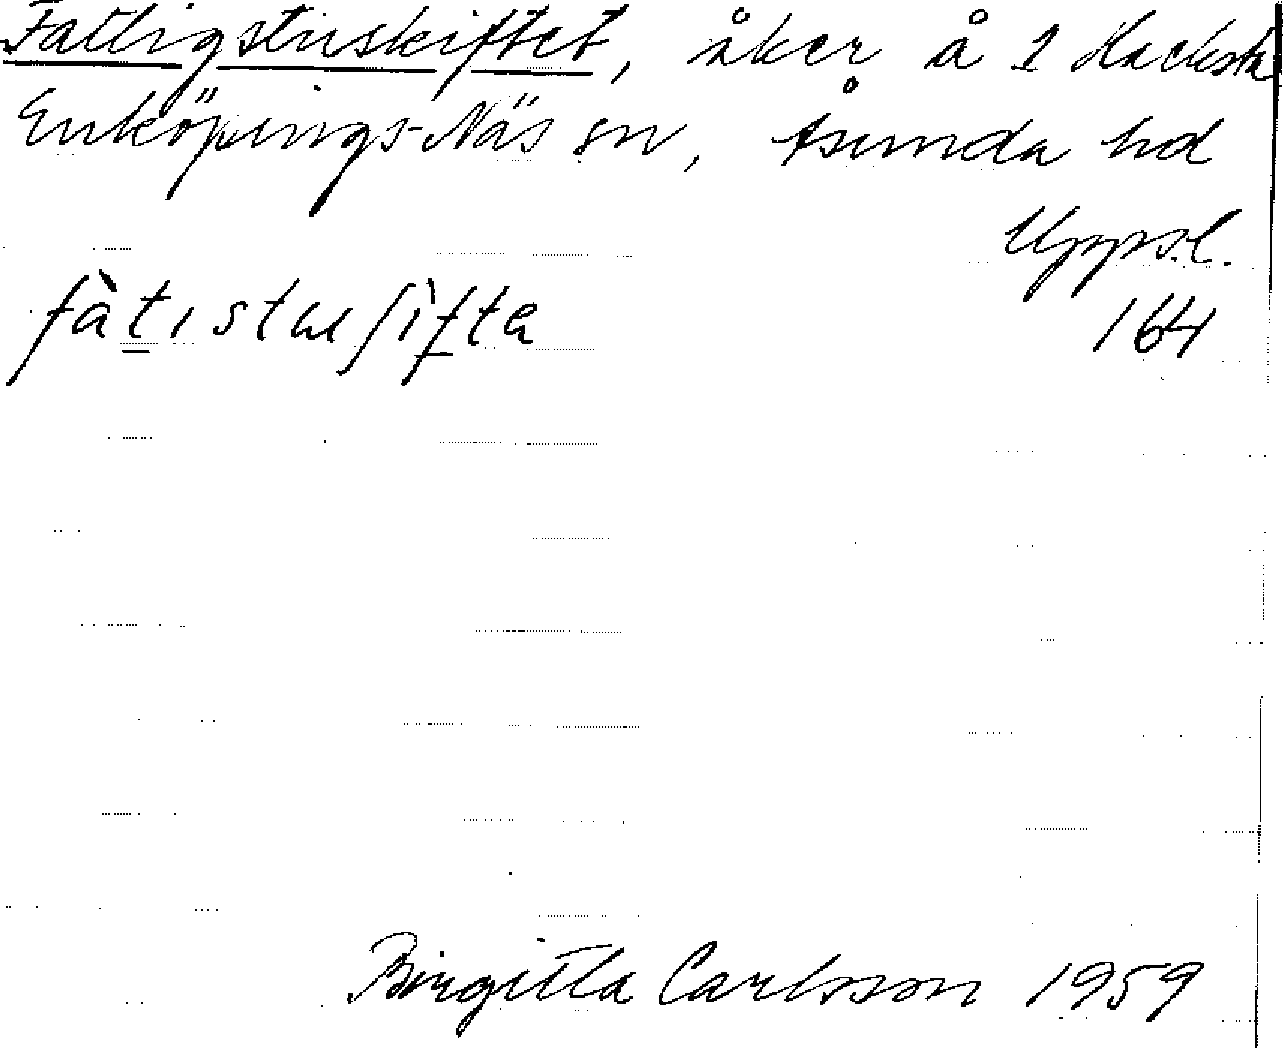 Fattigstuskiftet, åker å 1 Hacksta
Enköpings-Näs sn, Åsunda hd
Upps.l.
fàtıstuʃìfta 164
Birgitta Carlsson 1959